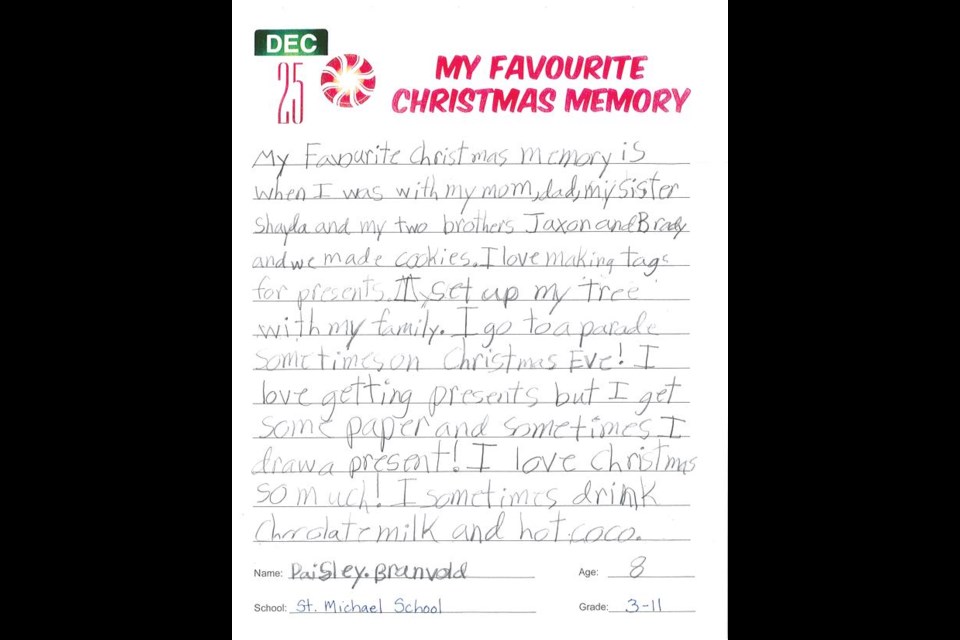 DEC
25
MY FAVOURITE
CHRISTMAS MEMORY
My Favourite christmas memory is
when I was with my mom, dad, my sister
Shayla and my two brothers Jaxon and Brady
and we made cookies. I love making tags
for presents. I set up my tree
with my family. I go to a parade
sometimes on Christmas Eve! I
love getting presents but I get
some paper and sometimes I
draw a present! I love christmas
so much! I sometimes drink
chocolate milk and hot coco.
Name: Paisley. Branvold Age: 8
School: St. Michael School Grade: 3-11